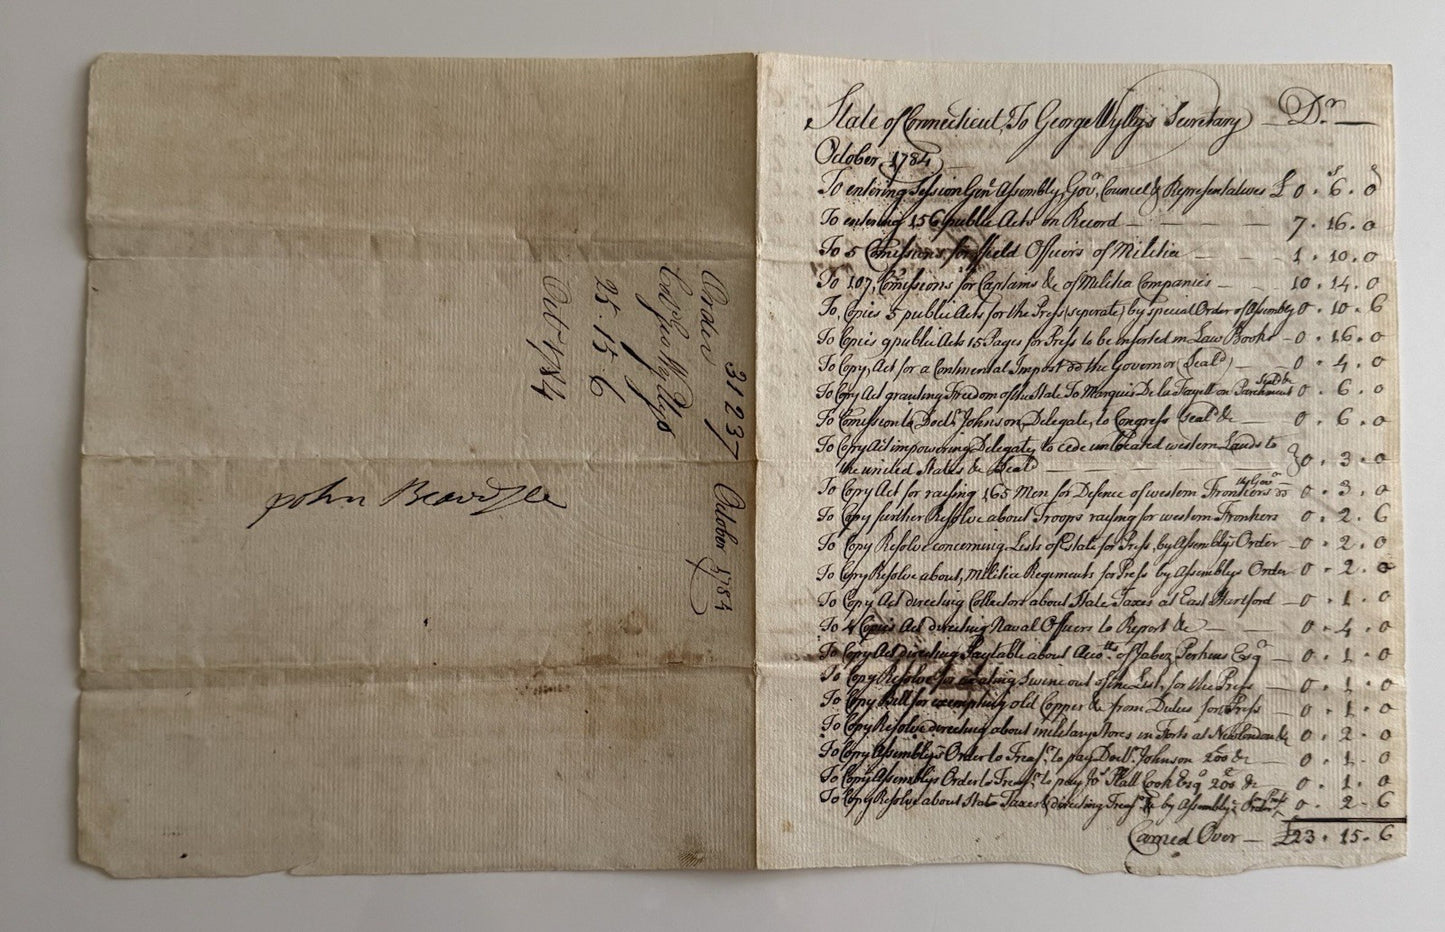 Order
Geo. Wyllys
25.15.6
Octr. 1784
31237 October 1784
John Beardsle
State of Connecticut, To George Wyllys Secretary — Dr —
October, 1784
To entering Session Genl Assembly, Govr, Councel & Representatives £ 0 . 6 . 0
To entering 156 public Acts on Record — 7 . 16 . 0
To 5 Comissions for ffield Officers of Militia — 1 . 10 . 0
To 107, Comissions for Captains &c of Militia Companies — 10 . 14 . 0
To, Copies 5 public Acts for the Press (seperate) by special Order of Assembly 0 . 10 . 6
To Copies 9 public Acts 15 Pages for Press to be inserted in Law Book — 0 . 16 . 0
To Copy, Act for a Continental Impost to the Governor (Seald) — 0 . 4 . 0
To Copy Act granting Freedom of the State To Marquis De la Fayett on Parchment Seald &c 0 . 6 . 0
To Comission to Doctr Johnson, Delegate, to Congress Seald &c — 0 . 6 . 0
To Copy Act impowering Delegates to cede unlocated western Lands to
the united States &c Seald — 0 . 3 . 0
To Copy Act for raising 165 Men for Defence of western Frontiers 0 . 3 . 0
To Copy further Resolve about Troops raising for western Frontiers 0 . 2 . 6
To Copy Resolve concerning Lists of Estate for Press, by Assembly's Order — 0 . 2 . 0
To Copy Resolve about, Militia Regiments for Press by Assemblys Order — 0 . 2 . 0
To Copy Act directing Collectors about State Taxes at East Hartford — 0 . 1 . 0
To 4 Copies Act directing Naval Officers to Report &c — 0 . 4 . 0
To Copy Act directing Paytable about Accots of Jabez Perkins Esqr — 0 . 1 . 0
To Copy Resolve for Swine out of the List, for the Press — 0 . 1 . 0
To Copy Bill for exempting old Copper &c from Duties for Press — 0 . 1 . 0
To Copy Resolve directing about military stores in Forts at Newlondon &c 0 . 2 . 0
To Copy Assembly's Order to Treasr to pay Doctr Johnson 200 &c — 0 . 1 . 0
To Copy Assemblys Order to Treasr to pay Jos Platt Cook Esqr 200 &c — 0 . 1 . 0
To Copy Resolve about State Taxes & directing Treasr &c by Assembly's Order 0 . 2 . 6
Carried Over — £23 . 15 . 6